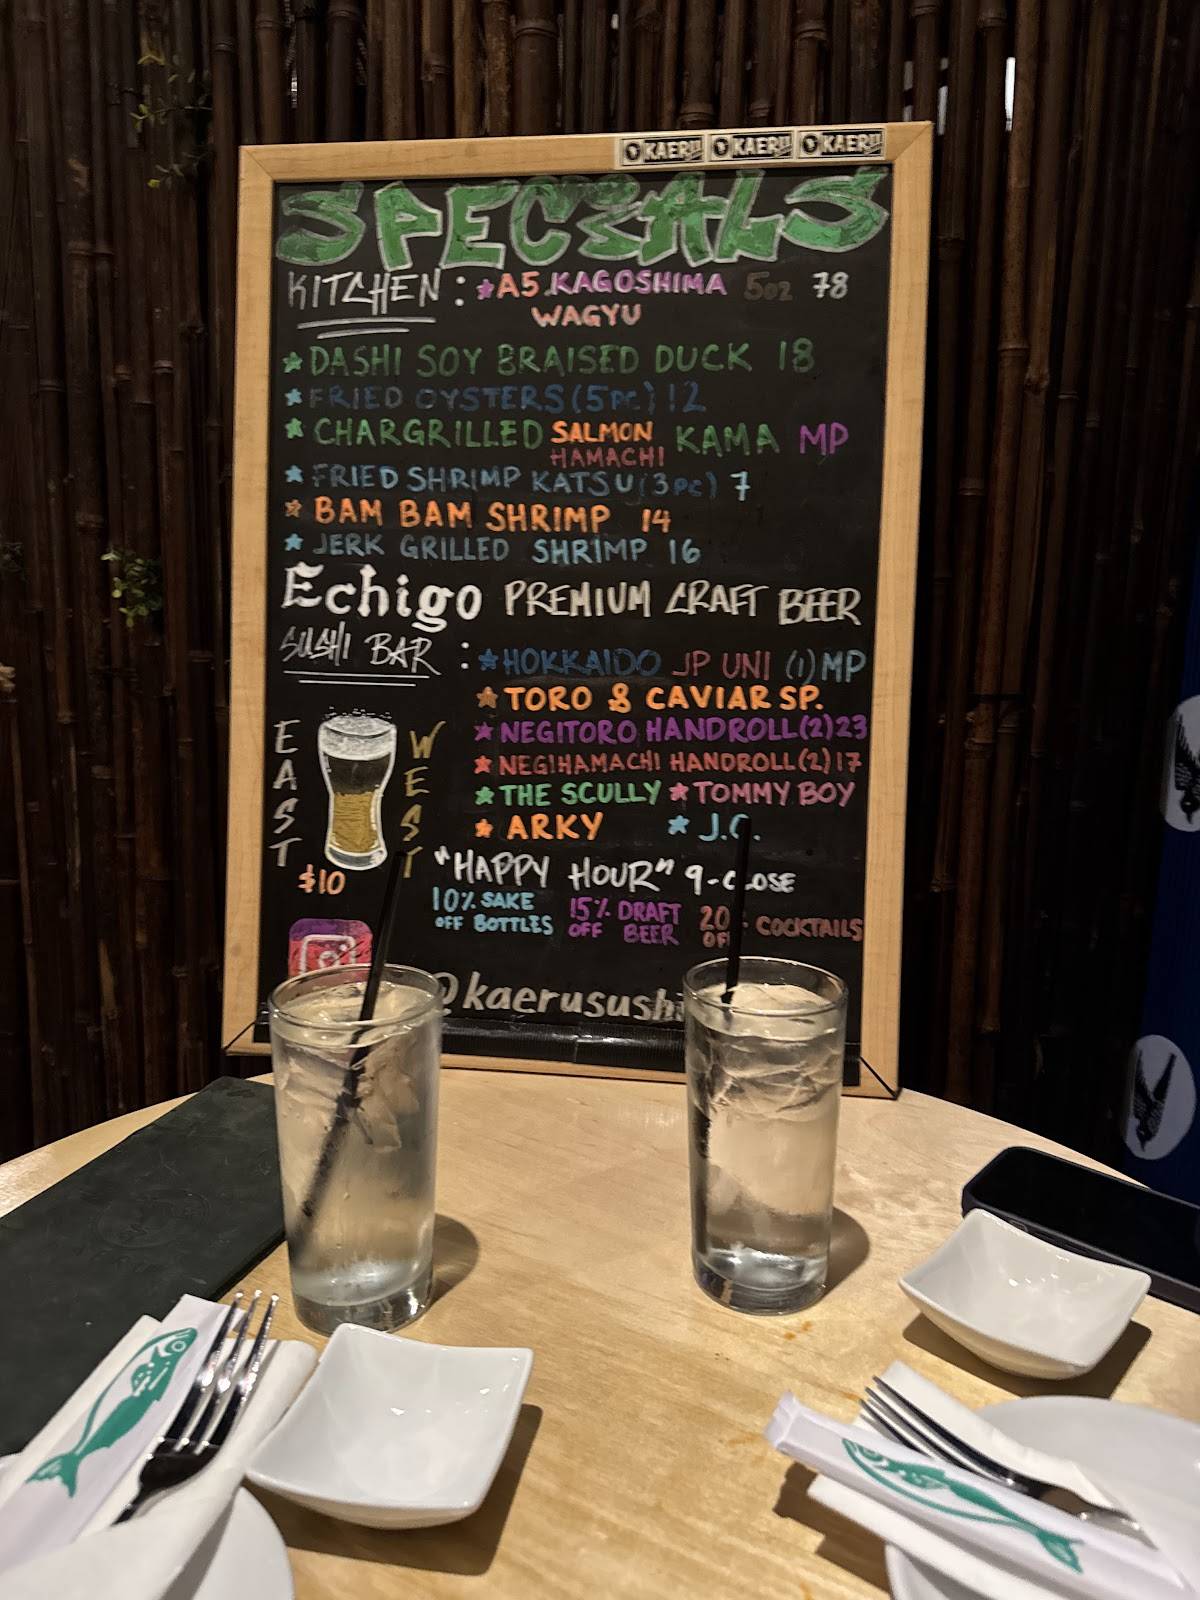 KAERU KAERU KAERU
SPECIALS
KITCHEN : A5 KAGOSHIMA 5oz 78
WAGYU
DASHI SOY BRAISED DUCK 18
FRIED OYSTERS (5pc) 12
CHARGRILLED SALMON KAMA MP
HAMACHI
FRIED SHRIMP KATSU (3pc) 7
BAM BAM SHRIMP 14
JERK GRILLED SHRIMP 16
Echigo PREMIUM CRAFT BEER
SUSHI BAR : HOKKAIDO JP UNI (1) MP
TORO & CAVIAR SP.
NEGITORO HANDROLL (2) 23
NEGIHAMACHI HANDROLL (2) 17
THE SCULLY TOMMY BOY
ARKY J.C.
EAST WEST
$10
"HAPPY HOUR" 9-CLOSE
10% SAKE 15% DRAFT 20% COCKTAILS
OFF BOTTLES OFF BEER OFF
@kaerusushi